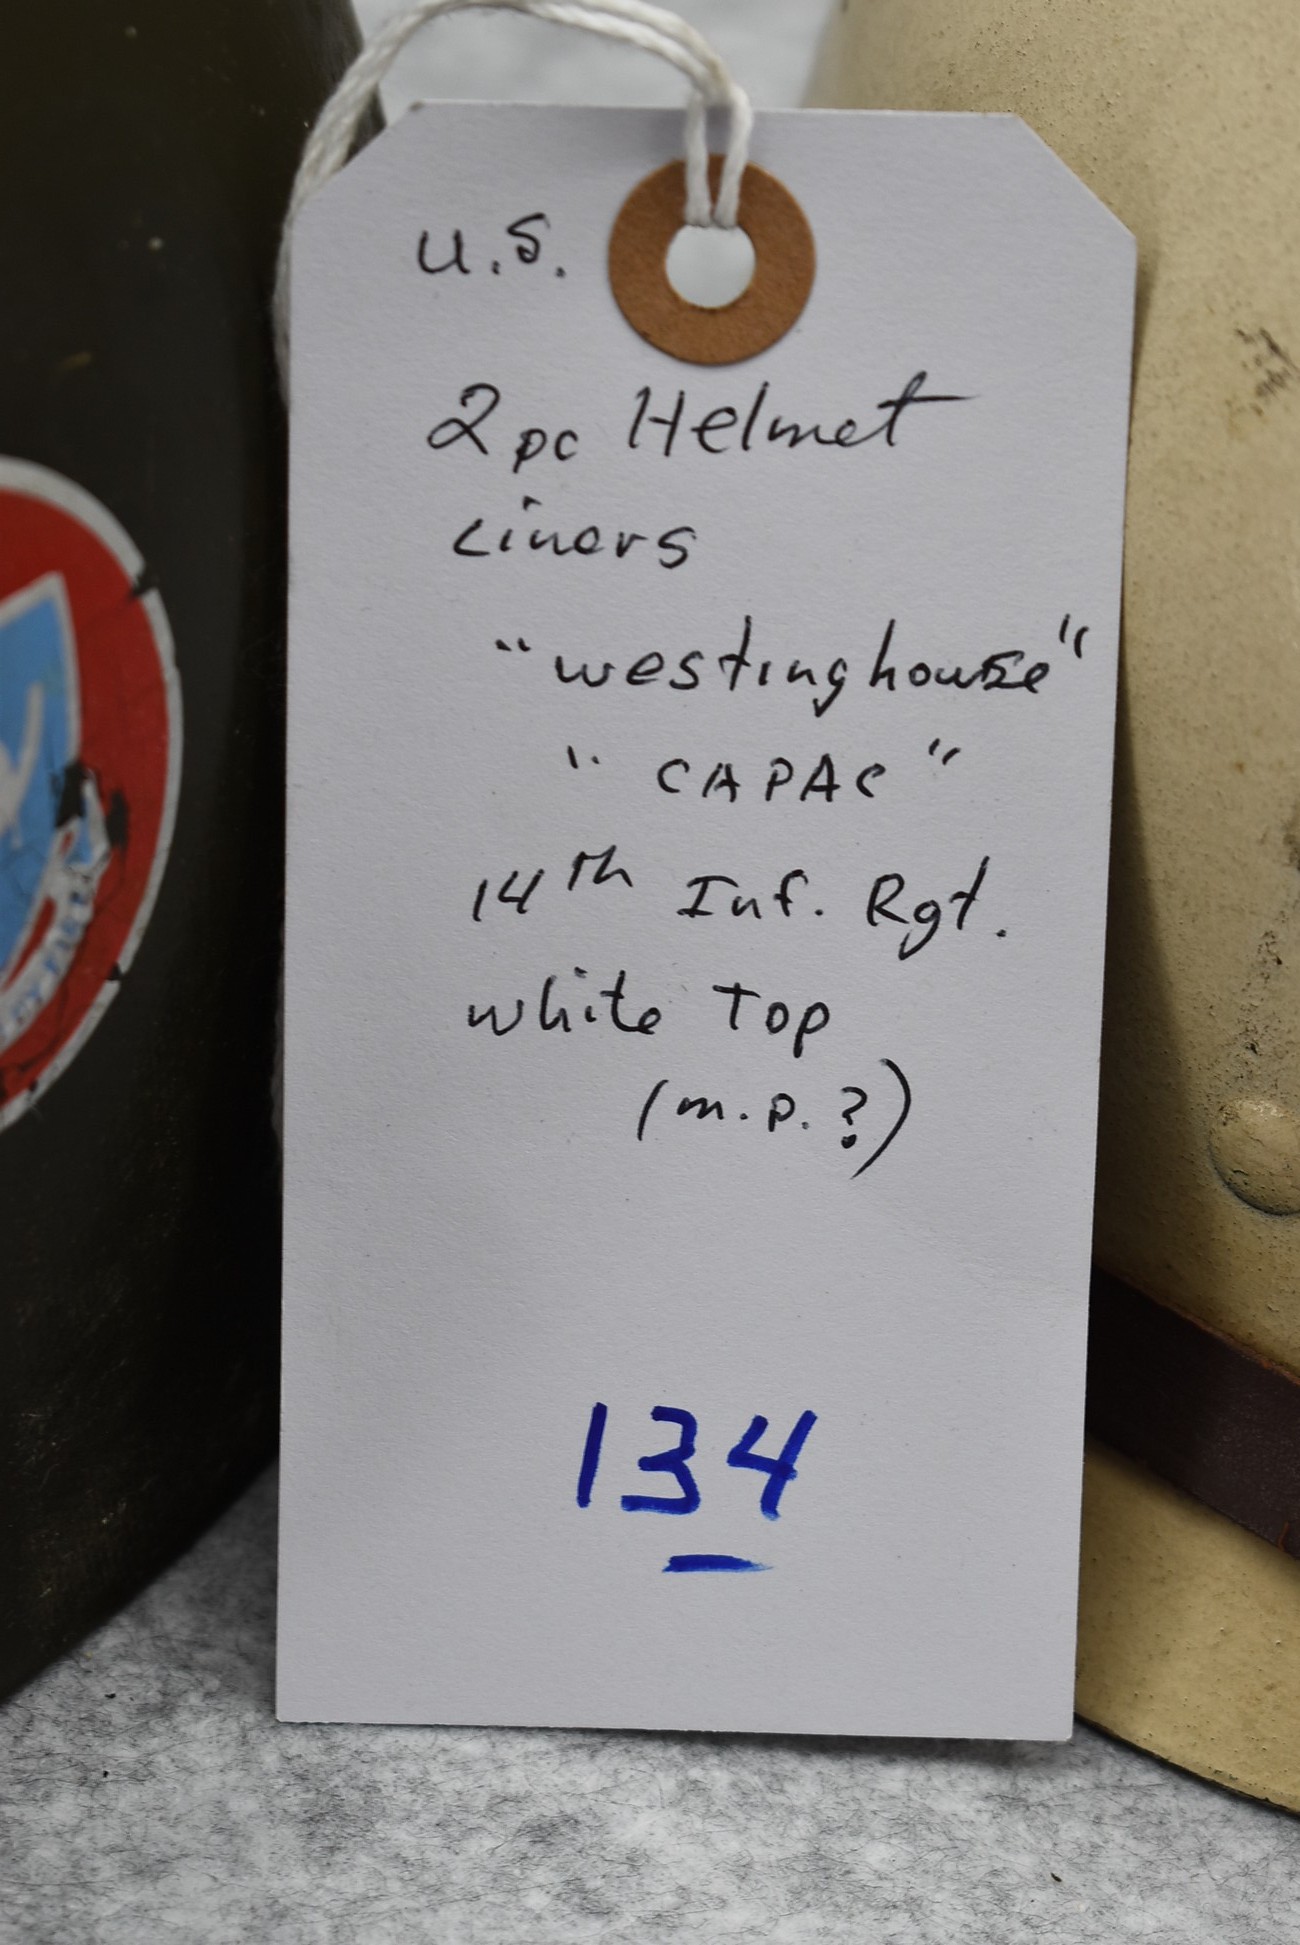 U.S.
2pc Helmet
Liners
"Westinghouse"
"CAPAC"
14th Inf. Rgt.
white Top
(m.p.?)
134